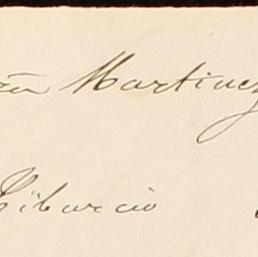 Martinez
Tiburcio